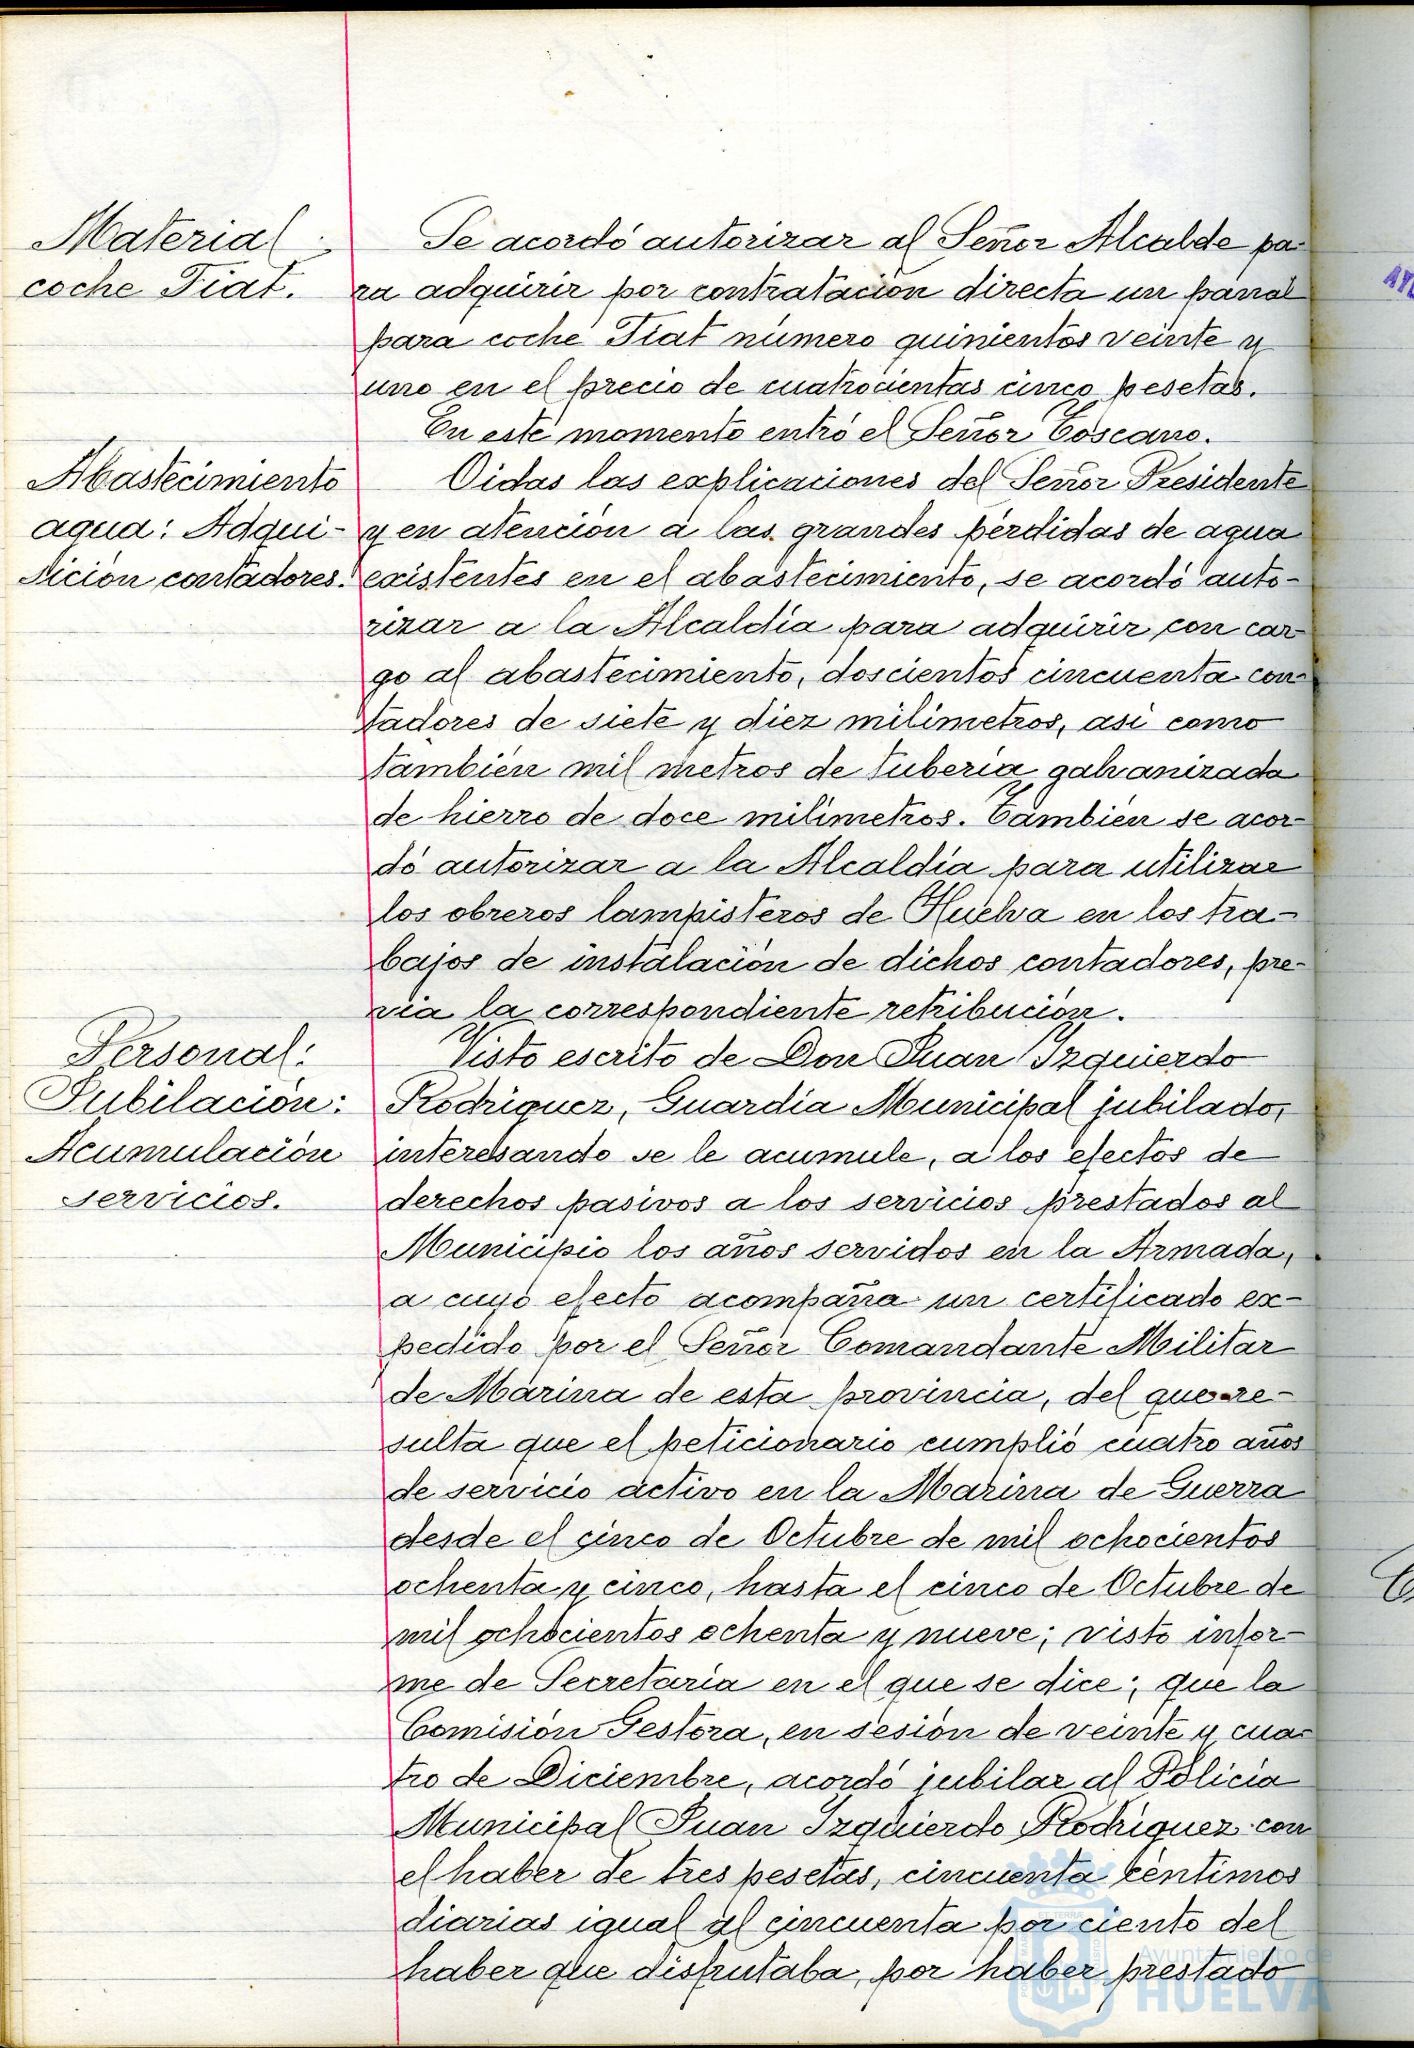 Material
coche Fiat.
Se acordó autorizar al Señor Alcalde pa-
ra adquirir por contratación directa un panal
para coche Fiat número quinientos veinte y
uno en el precio de cuatrocientas cinco pesetas.
En este momento entró el Señor Toscano.
Abastecimiento
agua: Adqui-
sición contadores.
Oidas las explicaciones del Señor Presidente
y en atención a las grandes pérdidas de agua
existentes en el abastecimiento, se acordó auto-
rizar a la Alcaldía para adquirir con car-
go al abastecimiento, doscientos cincuenta con-
tadores de siete y diez milimetros, asi como
también mil metros de tubería galvanizada
de hierro de doce milímetros. También se acor-
dó autorizar a la Alcaldía para utilizar
los obreros lampisteros de Huelva en los tra-
bajos de instalación de dichos contadores, pre-
via la correspondiente retribución.
Personal:
Jubilación:
Acumulación
servicios.
Visto escrito de Don Juan Izquierdo
Rodriguez, Guardia Municipal jubilado,
interesando se le acumule, a los efectos de
derechos pasivos a los servicios prestados al
Municipio los años servidos en la Armada,
a cuyo efecto acompaña un certificado ex-
pedido por el Señor Comandante Militar
de Marina de esta provincia, del que re-
sulta que el peticionario cumplió cuatro años
de servicio activo en la Marina de Guerra
desde el cinco de Octubre de mil ochocientos
ochenta y cinco, hasta el cinco de Octubre de
mil ochocientos ochenta y nueve; visto infor-
me de Secretaría en el que se dice; que la
Comisión Gestora, en sesión de veinte y cua-
tro de Diciembre, acordó jubilar al Policía
Municipal Juan Izquierdo Rodriguez con
el haber de tres pesetas, cincuenta céntimos
diarias igual al cincuenta por ciento del
haber que disfrutaba, por haber prestado
Ayuntamiento de
HUELVA